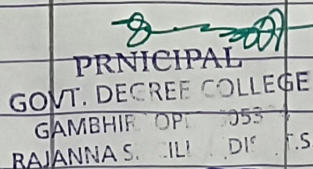 PRNICIPAL
GOVT. DEGREE COLLEGE
GAMBHIR OP 053
RAJANNA S. ILL DIS T.S